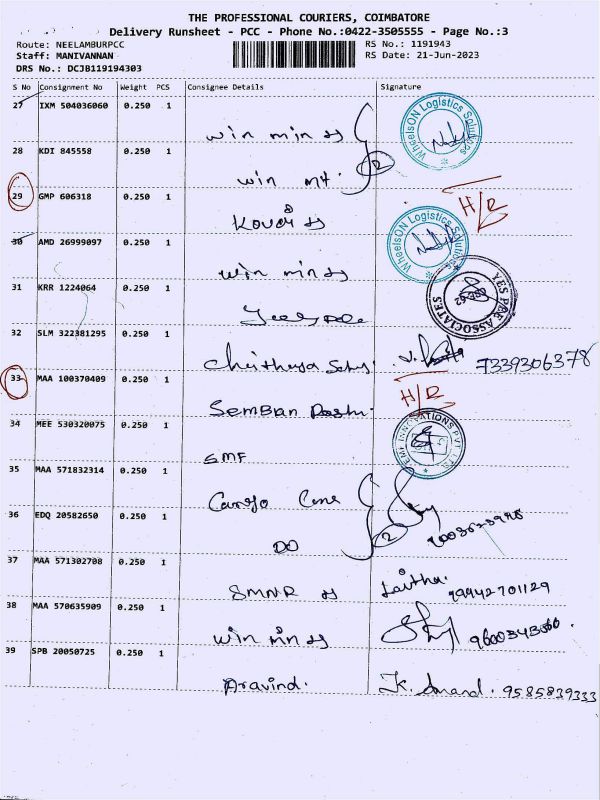 THE PROFESSIONAL COURIERS, COIMBATORE
Delivery Runsheet - PCC - Phone No.:0422-3505555 - Page No.:3
Route: NEELAMBURPCC RS No.: 1191943
Staff: MANIVANNAN RS Date: 21-Jun-2023
DRS No.: DCJB119194303
S No Consignment No Weight PCS Consignee Details Signature
27 IXM 504036060 0.250 1
win min
WheelsON Logistics Solutions
28 KDI 845558 0.250 1
win mt. 2
29 GMP 606318 0.250 1
H/R
30 AMD 26999097 0.250 1
win min
WheelsON Logistics Solutions
31 KRR 1224064 0.250 1
YES PEE ASSOCIATES
32 SLM 322381295 0.250 1
7339306378
33 MAA 100370409 0.250 1
Semban H/R
34 MEE 530320075 0.250 1
SMF
INNOVATIONS PVT
35 MAA 571832314 0.250 1
Cargo
36 EDQ 20582650 0.250 1
DO 2
37 MAA 571302708 0.250 1
SMNR 99942701129
38 MAA 570635909 0.250 1
win min
39 SPB 20050725 0.250 1
Aravind. K. Anand. 9585839333